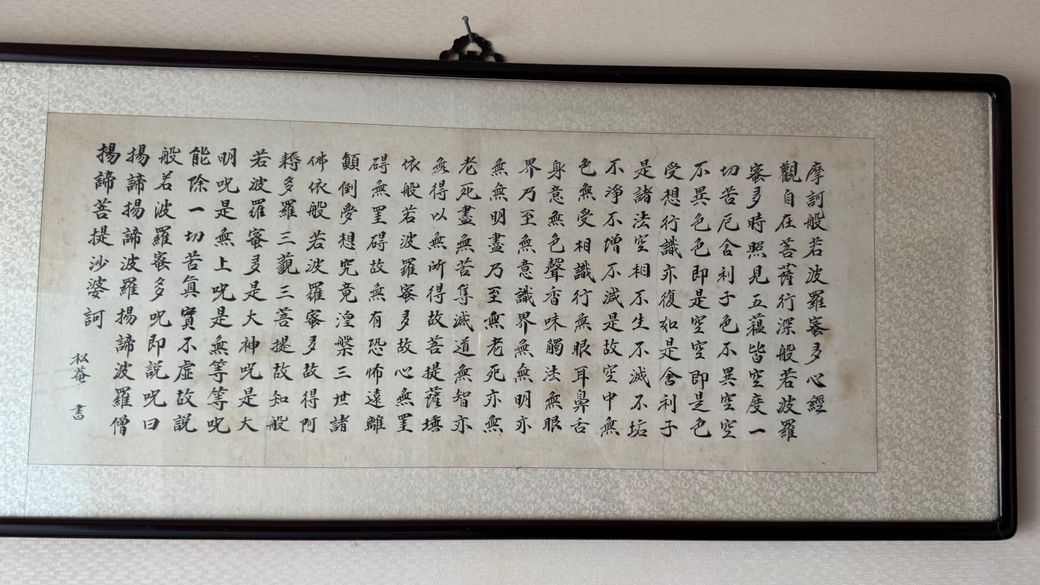 摩訶般若波羅蜜多心經
觀自在菩薩行深般若波羅
蜜多時照見五蘊皆空度一
切苦厄舍利子色不異空空
不異色色即是空空即是色
受想行識亦復如是舍利子
是諸法空相不生不滅不垢
不淨不增不減是故空中無
色無受相識行無眼耳鼻舌
身意無色聲香味觸法無眼
界乃至無意識界無無明亦
無無明盡乃至無老死亦無
老死盡無苦集滅道無智亦
無得以無所得故菩提薩埵
依般若波羅蜜多故心無罣
碍無罣碍故無有恐怖遠離
顛倒夢想究竟涅槃三世諸
佛依般若波羅蜜多故得阿
耨多羅三藐三菩提故知般
若波羅蜜多是大神呪是大
明呪是無上呪是無等等呪
能除一切苦眞實不虛故說
般若波羅蜜多呪即說呪曰
揚諦揚諦波羅揚諦波羅僧
揚諦菩提沙婆訶
松菴 書